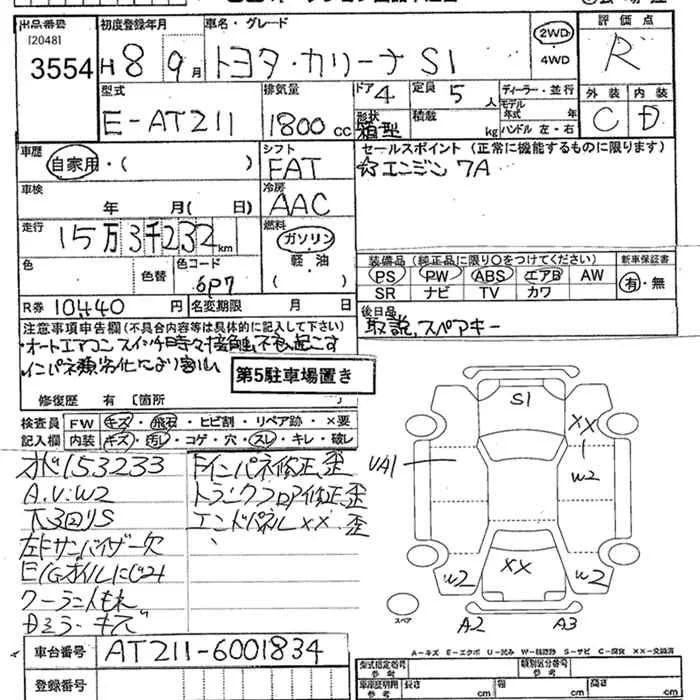 出品番号
[2048]
3554
初度登録年月
H 8 9月
車名・グレード
トヨタ・カリーナ S1
2WD
・
4WD
評価点
R
型式
E-AT211
排気量
1800 cc
ドア 4
定員 5 人
ディーラー・並行
モデル年式 年
形状
箱型
積載 kg
ハンドル 左・右
外装 内装
C D
車歴
自家用・( )
シフト
FAT
セールスポイント (正常に機能するものに限ります)
☆エンジン 7A
車検
年 月( 日)
冷房
AAC
走行
15万3千232km
燃料
ガソリン
軽・油
( )
色
色替
色コード
6P7
装備品 (純正品に限り○をつけてください)
新車保証書
PS PW ABS エアB AW
SR ナビ TV カワ
有・無
R券 10440 円
名変期限 月 日
後日品
取説、スペアキー
注意事項申告欄 (不具合内容等は具体的に記入して下さい)
・オートエアコンスイッチ時々接触不良起こす
インパネ類劣化により
第5駐車場置き
修復歴 有 [箇所
検査員
記入欄
FW キズ・飛石・ヒビ割・リペア跡・×要
内装 キズ・汚レ・コゲ・穴・スレ・キレ・破レ
オド153233
A.U.W2
下回りS
左Fサンバイザー欠
E/Gオイルにじみ
クーラントもれ
Dミラーキズ
Fインパネ修正歪
トランクフロア修正歪
エンドパネル××歪
S1
××
W2
UA1
W2
××
W2
A2
A3
スペア
A-キズ E-エクボ U-凹み W-補修跡 S-サビ C-腐食 ××-交換済
車台番号
AT211-6001834
登録番号
型式指定番号
参考
類別区分番号
参考
車庫証明用
参考
長さ cm
幅 cm
高さ cm